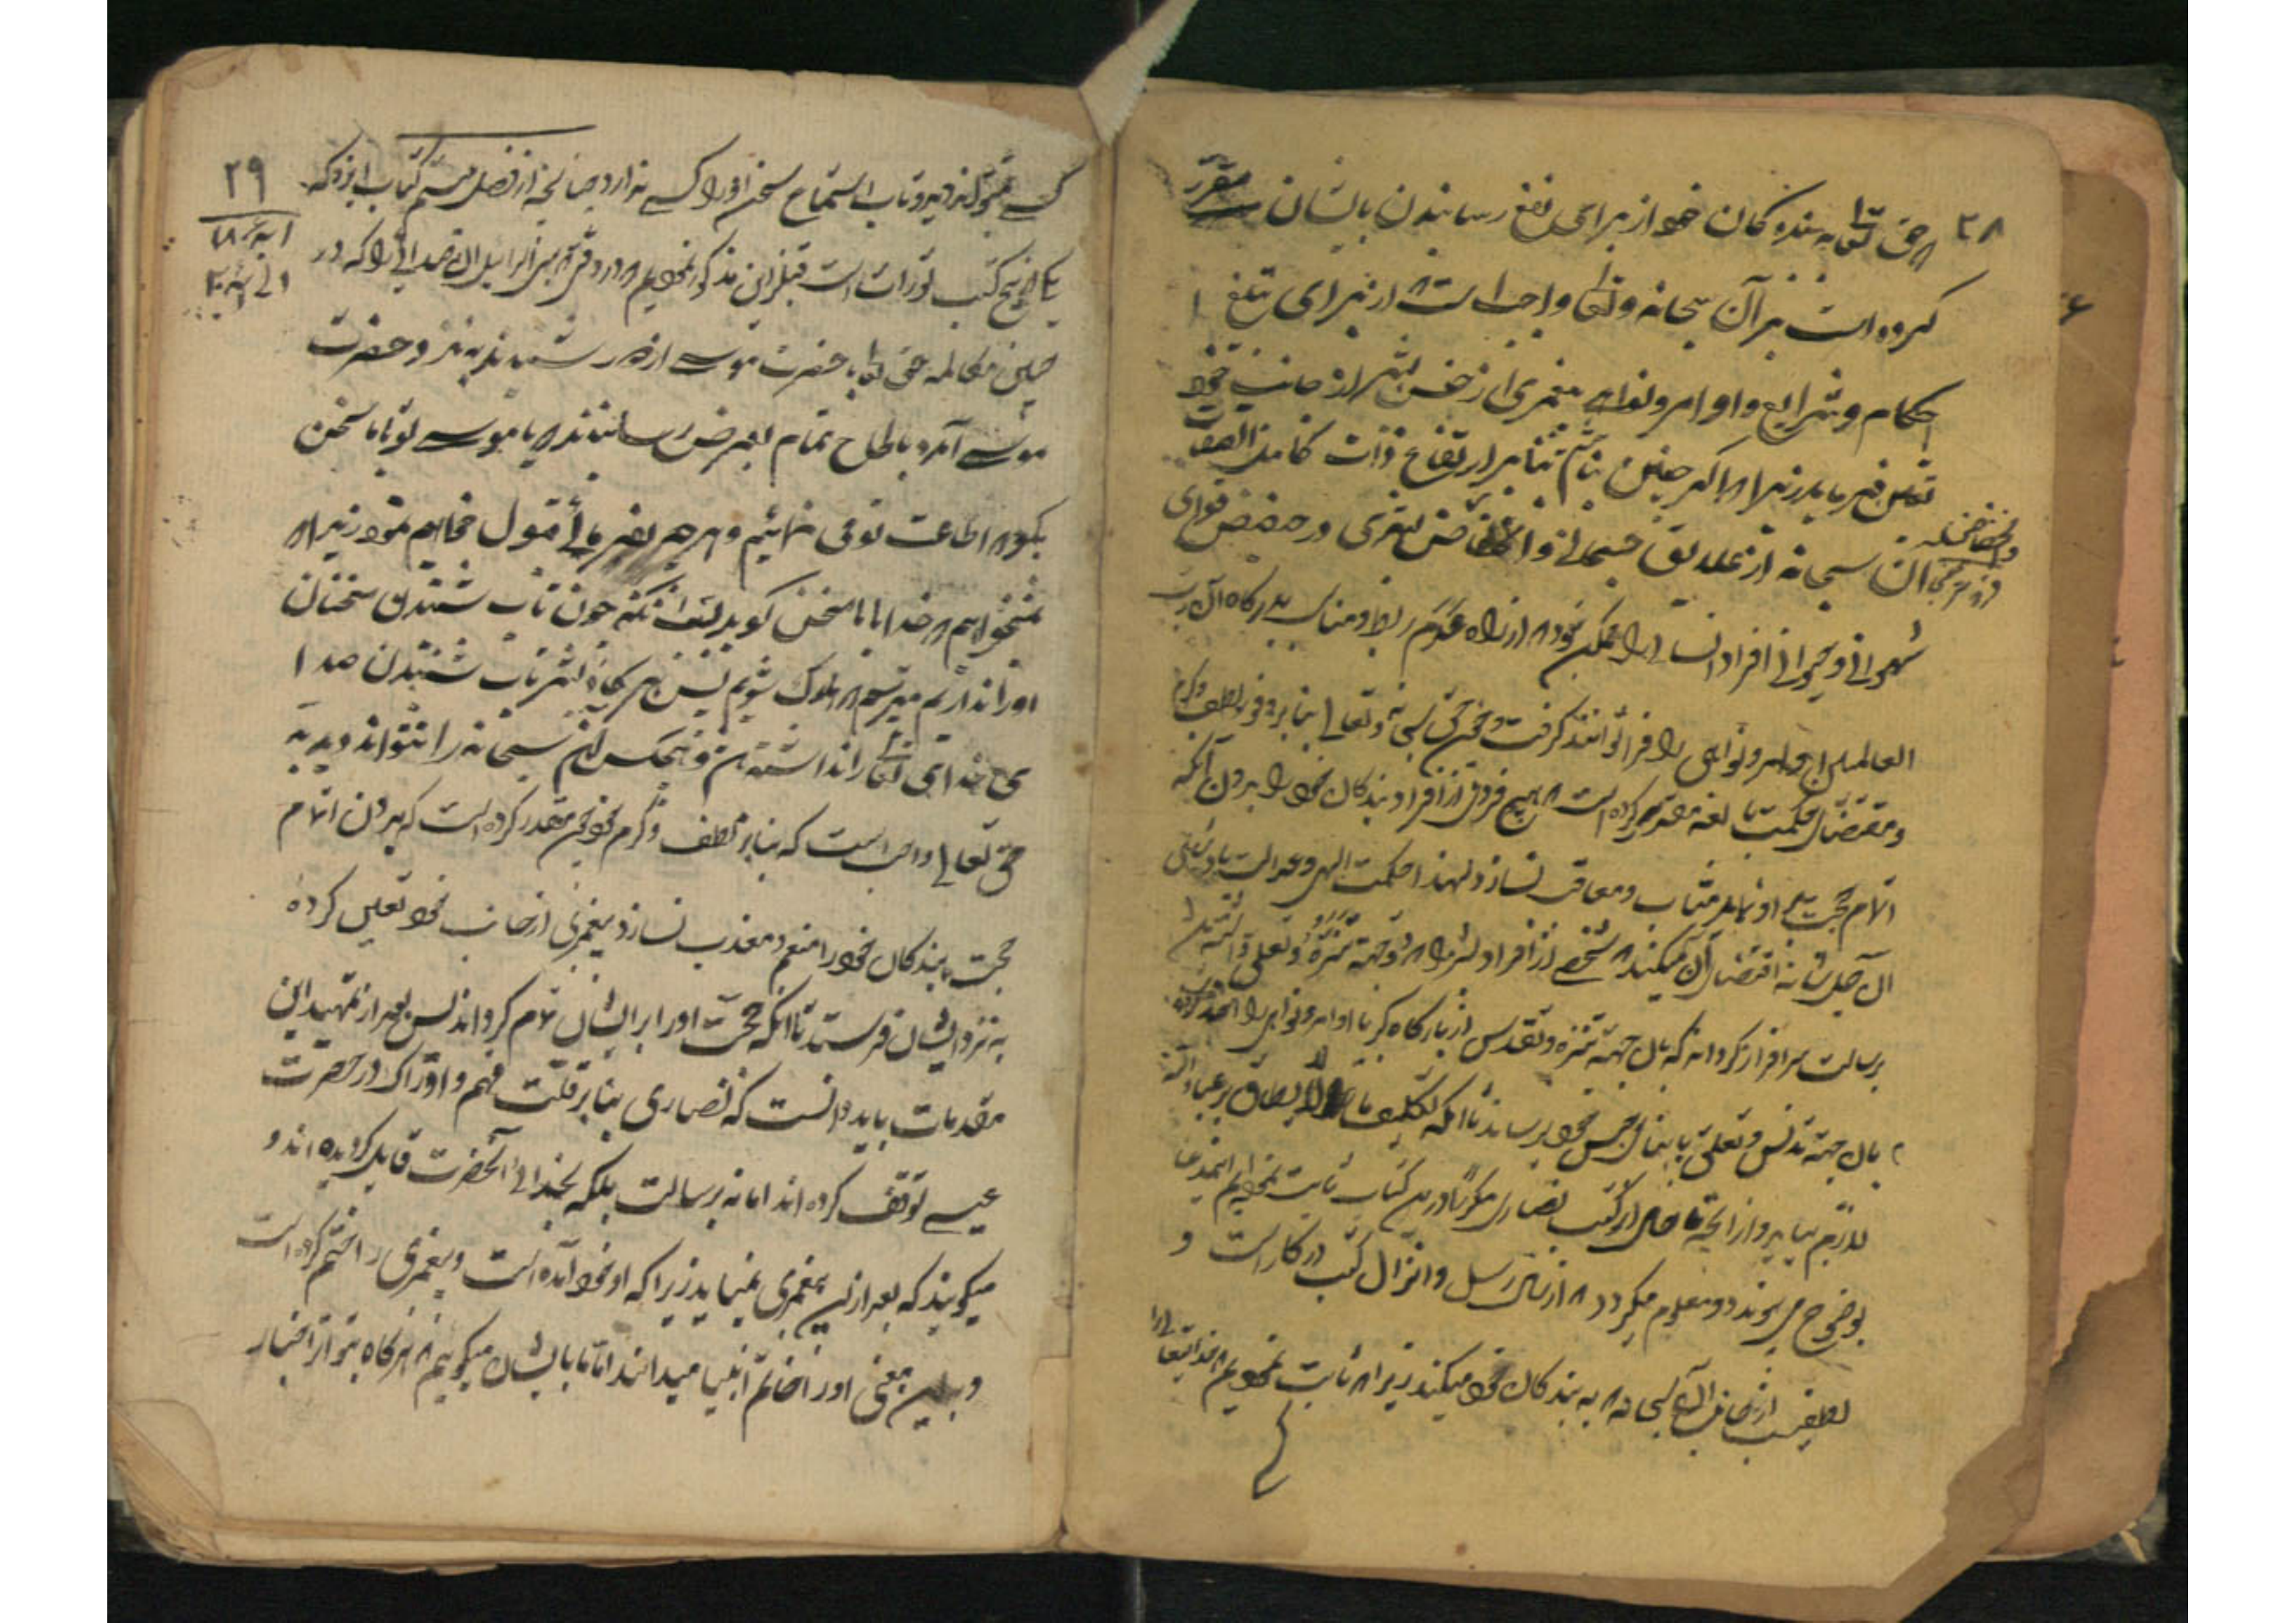 ۲۸
که حق تعالی به بندگان خود از برای نفع رسانیدن بایشان مقرر
کرده است بر آن سبحانه و تعالی واجب است که از برای تبلیغ
احکام و شرایع و اوامر و نواهی پیغمبری از جنس بشر از جانب خود
تعیین فرماید زیرا که اگر چنین نباشد بنا بر ارتفاع ذات کامل الصفات
آن سبحانه از علایق جسمانی و انخفاض بشری در حضیض قوای
شهوانی و حیوانی افراد انسانی را ممکن نبود که از راه عدم ربط و مناسبت بدرگاه آن رب
العالمین اوامر و نواهی را فرا توانند گرفت و چون حق سبحانه و تعالی بنا بر وفور لطف و کرم
و مقتضای حکمت بالغه مقرر کرده است که هیچ فردی از افراد بندگان خود را بدون آنکه
اتمام حجت بر او نماید مثاب و معاقب نسازد لهذا حکمت الهی و عدالت
آن جل شانه اقتضای آن میکند که شخصی از افراد بشر را که دو جهة تنزه و تعلق داشته باشد
برسالت سرافراز گرداند که بآن جهة تنزه و تقدس از بارگاه کبریا اوامر و نواهی را اخذ کرده
بآن جهة تدنس و تعلق بابنای جنس خود برساند تا آنکه تکلیف ما لا یطاق بر عباد الله
لازم نیاید و از آنچه ما از کتب نصاری مکررا در این کتاب ثابت نموده‌ایم این مدعا
بوضوح می‌پیوندد و معلوم میگردد که ارسال رسل و انزال کتب در کار است و
لطفیست از جانب آن سبحانه که به بندگان خود میکند زیرا که ثابت نمودیم که خدایتعالی را
۲۹
کسی نمیتواند دید و تاب استماع سخن او را کسی ندارد چنانچه از فصل بیستم کتاب ایزدکه
یکی از پنج کتب تورات است قبل از این مذکور نمودیم که در وقتی که بنی اسرائیل آن صدائی را که در
حین مکالمه حق تعالی با حضرت موسی از دور شنیدند به نزد حضرت
موسی آمده بالحاح تمام بعرض رسانیدند که یا موسی تو با ما سخن
بگو که اطاعت تو می نمائیم و هر چه بفرمائی قبول خواهیم نمود زیرا که
نمیخواهیم که خدا با ما سخن گوید بتقریب آنکه چون تاب شنیدن سخنان
او را نداریم میترسیم که هلاک شویم پس هرگاه بشر تاب شنیدن صدا
ی خدای تعالی را نداشته باشد و هیچکس آن سبحانه را نتواند دید به
حق تعالی واجب است که بنا بر لطف و کرم خود چون مقدر کرده است که بدون اتمام
حجت بندگان خود را منعم و معذب نسازد پیغمبری از جانب خود تعیین کرده
به نزد ایشان فرستد تا آنکه حجت او را بر ایشان تمام گرداند پس بعد از تمهید این
مقدمات باید دانست که نصاری بنا بر قلت فهم و ادراک در حضرت
عیسی توقف کرده اند اما نه برسالت بلکه بخدائی آنحضرت قایل گردیده اند و
میگویند که بعد از این پیغمبری نمیاید زیرا که او خود آمده است و پیغمبری را ختم کرده است
و باین معنی او را خاتم انبیا میدانند اما ما بایشان میگوییم که هرگاه بنا بر اخبار